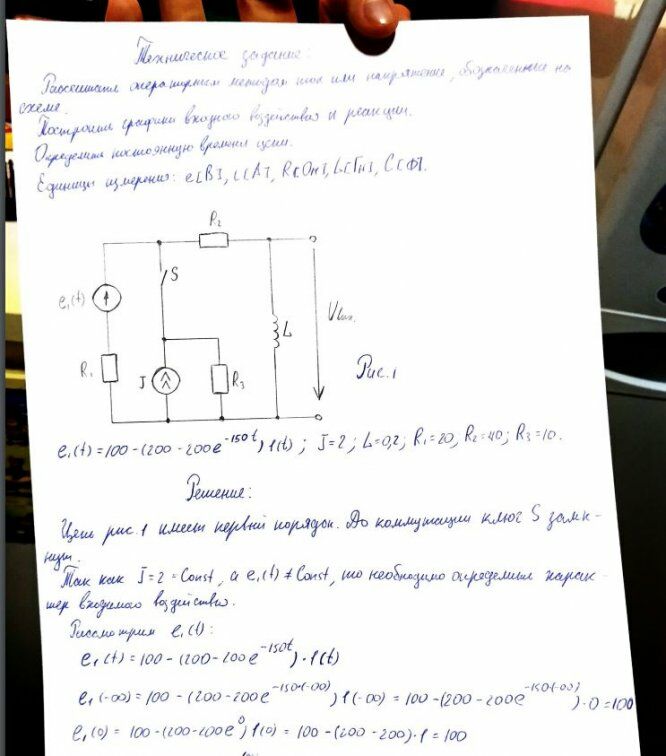 Техническое задание:
Рассчитать операторным методом ток или напряжение, обозначенные на
схеме.
Построить графики входного воздействия и реакции.
Определить постоянную времени цепи.
Единицы измерения: e[В], i[А], R[Ом], L[Гн], C[Ф].
R₂
S
e₁(t)
L
Vвых.
R₁
J
R₃
Рис.1
e₁(t) = 100 - (200 - 200e^{-150t}) 1(t) ; J=2 ; L=0,2 ; R₁=20, R₂=40 ; R₃=10.
Решение:
Цепь рис.1 имеет первый порядок. До коммутации ключ S замк-
нут.
Так как J=2=Const, а e₁(t)≠Const, то необходимо определить харак-
тер входного воздействия.
Рассмотрим e₁(t):
e₁(t) = 100 - (200 - 200e^{-150t}) · 1(t)
e₁(-∞) = 100 - (200 - 200e^{-150·(-∞)}) 1(-∞) = 100 - (200 - 200e^{-150(-∞)}) · 0 = 100
e₁(0) = 100 - (200 - 200e⁰) 1(0) = 100 - (200 - 200) · 1 = 100